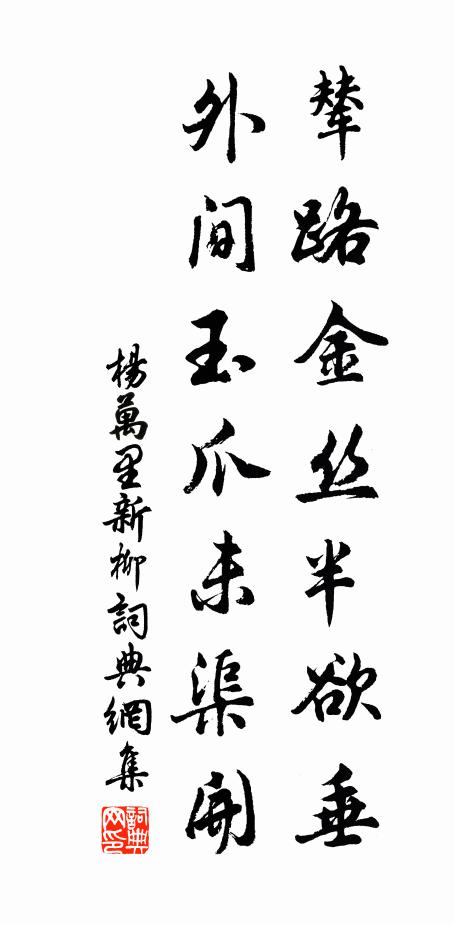 輦路金丝半欲垂
外间玉爪未渠開
楊萬里新柳詞典網集
詞典网印